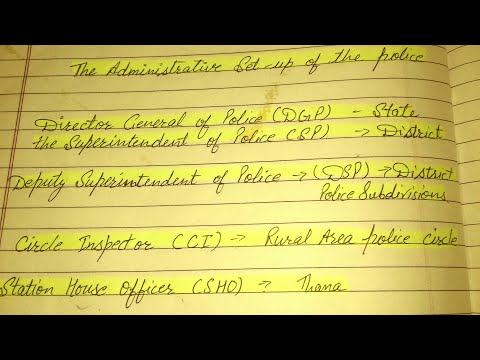 The Administrative Set-up of the police
Director General of Police (DGP) - State
the Superintendent of Police (SP) → District
Deputy Superintendent of Police → (DSP) → District
Police Subdivisions
Circle Inspector (CI) → Rural Area police circle
Station House Officer (SHO) → Thana